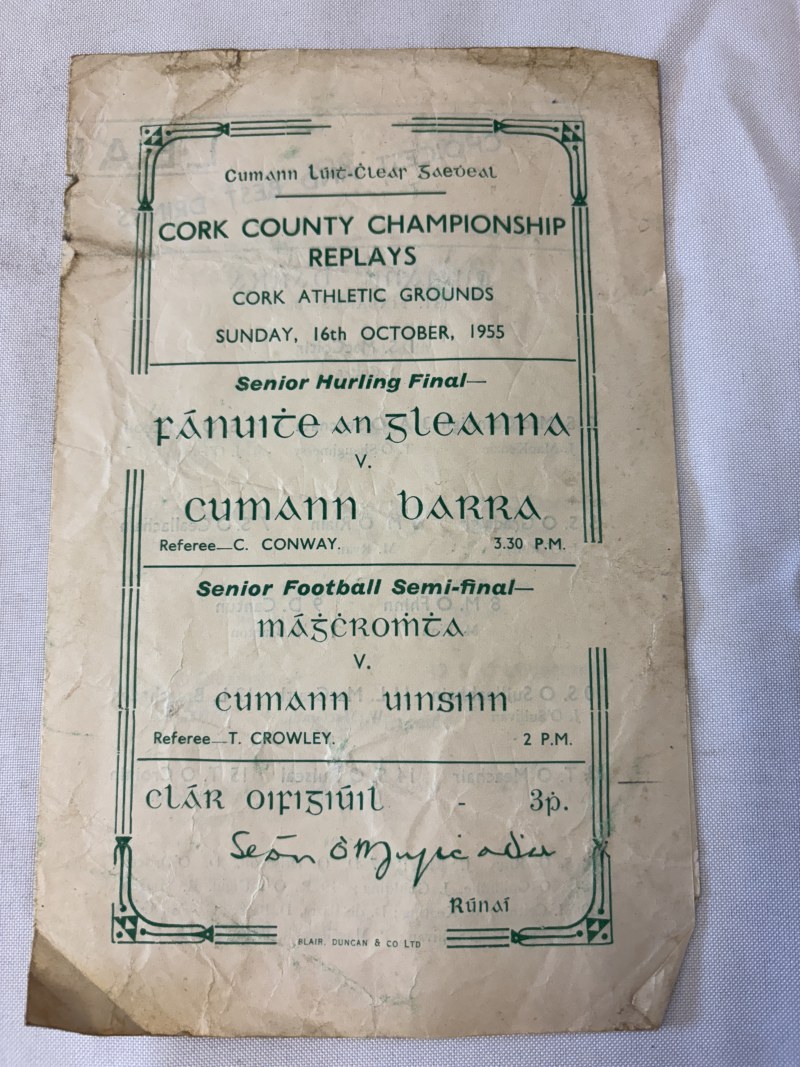 Cumann Lúiṫ-Ċleas Gaeḋeal
CORK COUNTY CHAMPIONSHIP
REPLAYS
CORK ATHLETIC GROUNDS
SUNDAY, 16th OCTOBER, 1955
Senior Hurling Final—
Fánuiṫe an Gleanna
V.
Cumann Barra
Referee—C. CONWAY. 3.30 P.M.
Senior Football Semi-final—
Máġċromṫa
V.
Cumann Uinsinn
Referee—T. CROWLEY. 2 P.M.
Clár Oifigiúil - 3ṗ.
Seán
Rúnaí
BLAIR, DUNCAN & CO LTD